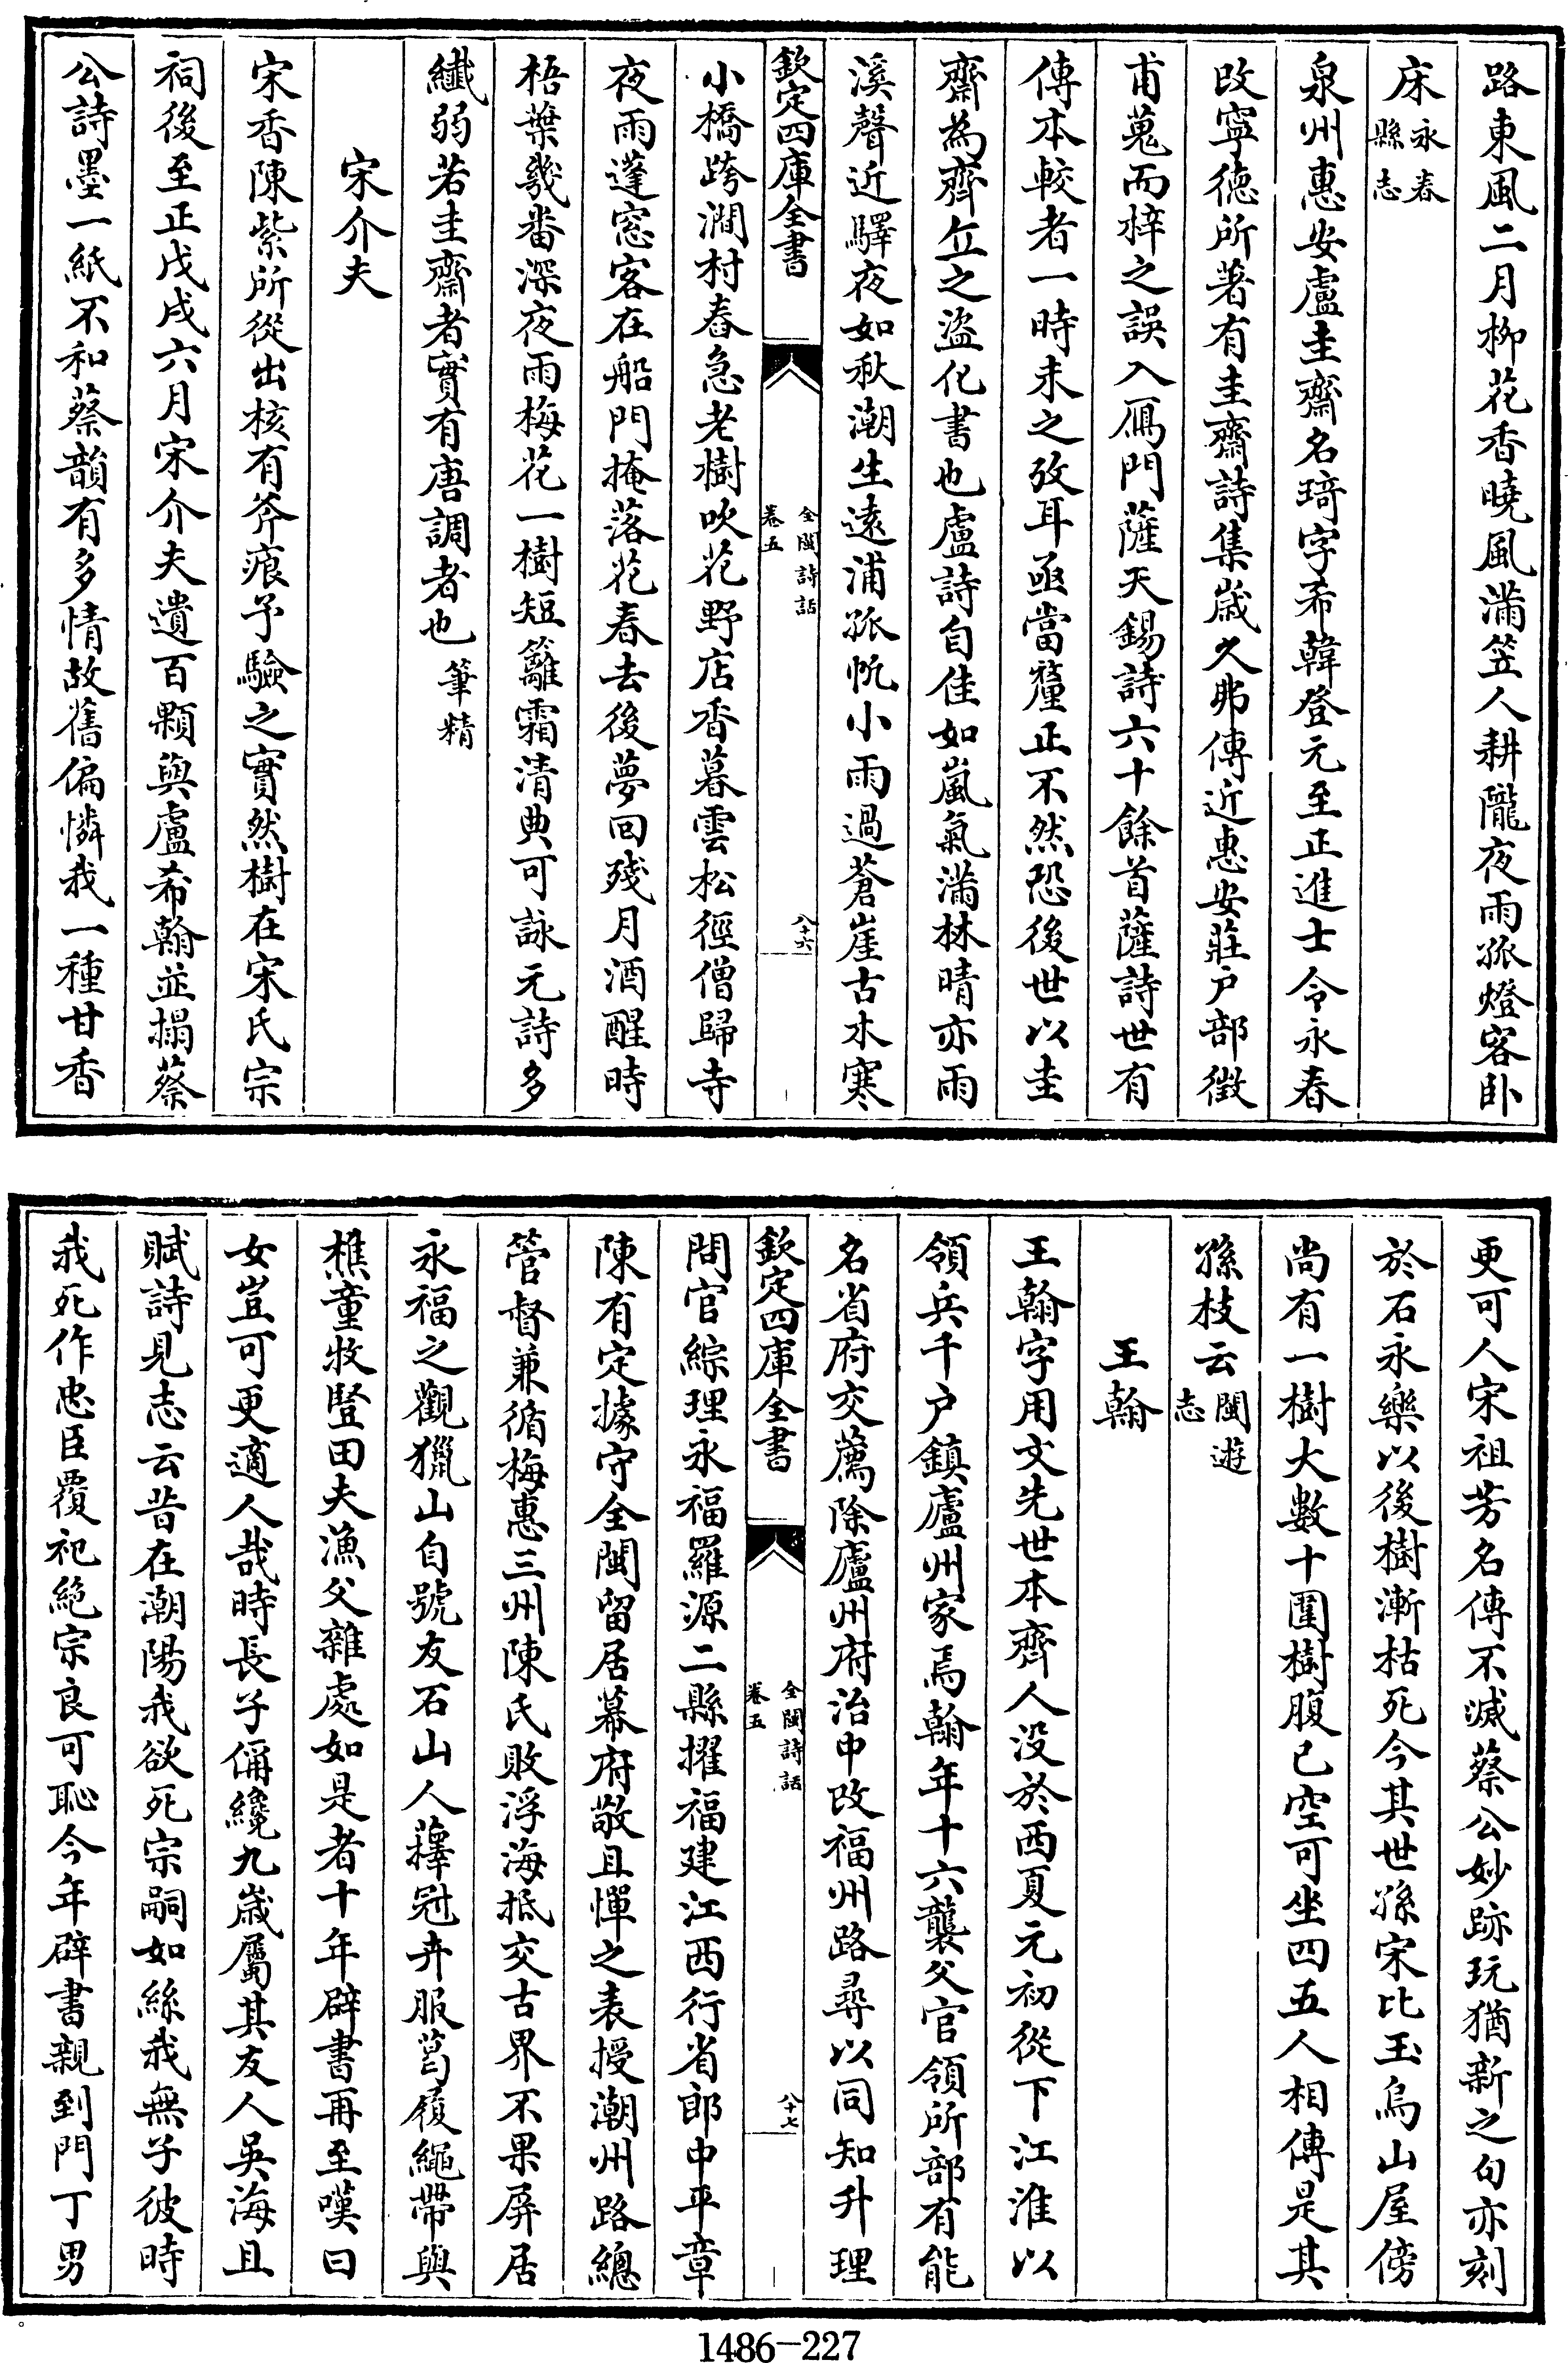 路東風二月柳花香曉風滿笠人耕隴夜雨孤燈客卧
床永春縣志
泉州惠安盧圭齋名琦字希韓登元至正進士令永春
改寧德所著有圭齋詩集歲久弗傳近惠安莊户部徵
甫蒐而梓之誤入鴈門薩天錫詩六十餘首薩詩世有
傳本較者一時未之攷耳亟當釐正不然恐後世以圭
齋為齊丘之盜化書也盧詩自佳如嵐氣滿林晴亦雨
溪聲近驛夜如秋潮生遠浦孤帆小雨過蒼崖古木寒
欽定四庫全書
全閩詩話
卷五
八十六
小橋跨澗村舂急老樹吹花野店香暮雲松徑僧歸寺
夜雨蓬窓客在船門掩落花春去後夢回殘月酒醒時
梧葉幾番深夜雨梅花一樹短籬霜清典可詠元詩多
纖弱若圭齋者實有唐調者也筆精
宋介夫
宋香陳紫所從出核有斧痕予驗之實然樹在宋氏宗
祠後至正戊戌六月宋介夫遺百顆與盧希翰並搨蔡
公詩墨一紙不和蔡韻有多情故舊偏憐我一種甘香
更可人宋祖芳名傳不滅蔡公妙跡玩猶新之句亦刻
於石永樂以後樹漸枯死今其世孫宋比玉烏山屋傍
尚有一樹大數十圍樹腹已空可坐四五人相傳是其
孫枝云閩遊志
王翰
王翰字用文先世本齊人没於西夏元初從下江淮以
領兵千户鎮廬州家焉翰年十六襲父官領所部有能
名省府交薦除廬州府治中改福州路尋以同知升理
欽定四庫全書
全閩詩話
卷五
八十七
問官綜理永福羅源二縣擢福建江西行省郎中平章
陳有定據守全閩留居幕府敬且憚之表授潮州路總
管督兼循梅惠三州陳氏敗浮海抵交古界不果屏居
永福之觀獵山自號友石山人蘀冠卉服葛履繩帶與
樵童牧豎田夫漁父雜處如是者十年辟書再至嘆曰
女豈可更適人哉時長子偁纔九歲屬其友人吳海且
賦詩見志云昔在潮陽我欲死宗嗣如絲我無子彼時
我死作忠臣覆祀絶宗良可恥今年辟書親到門丁男
1486-227